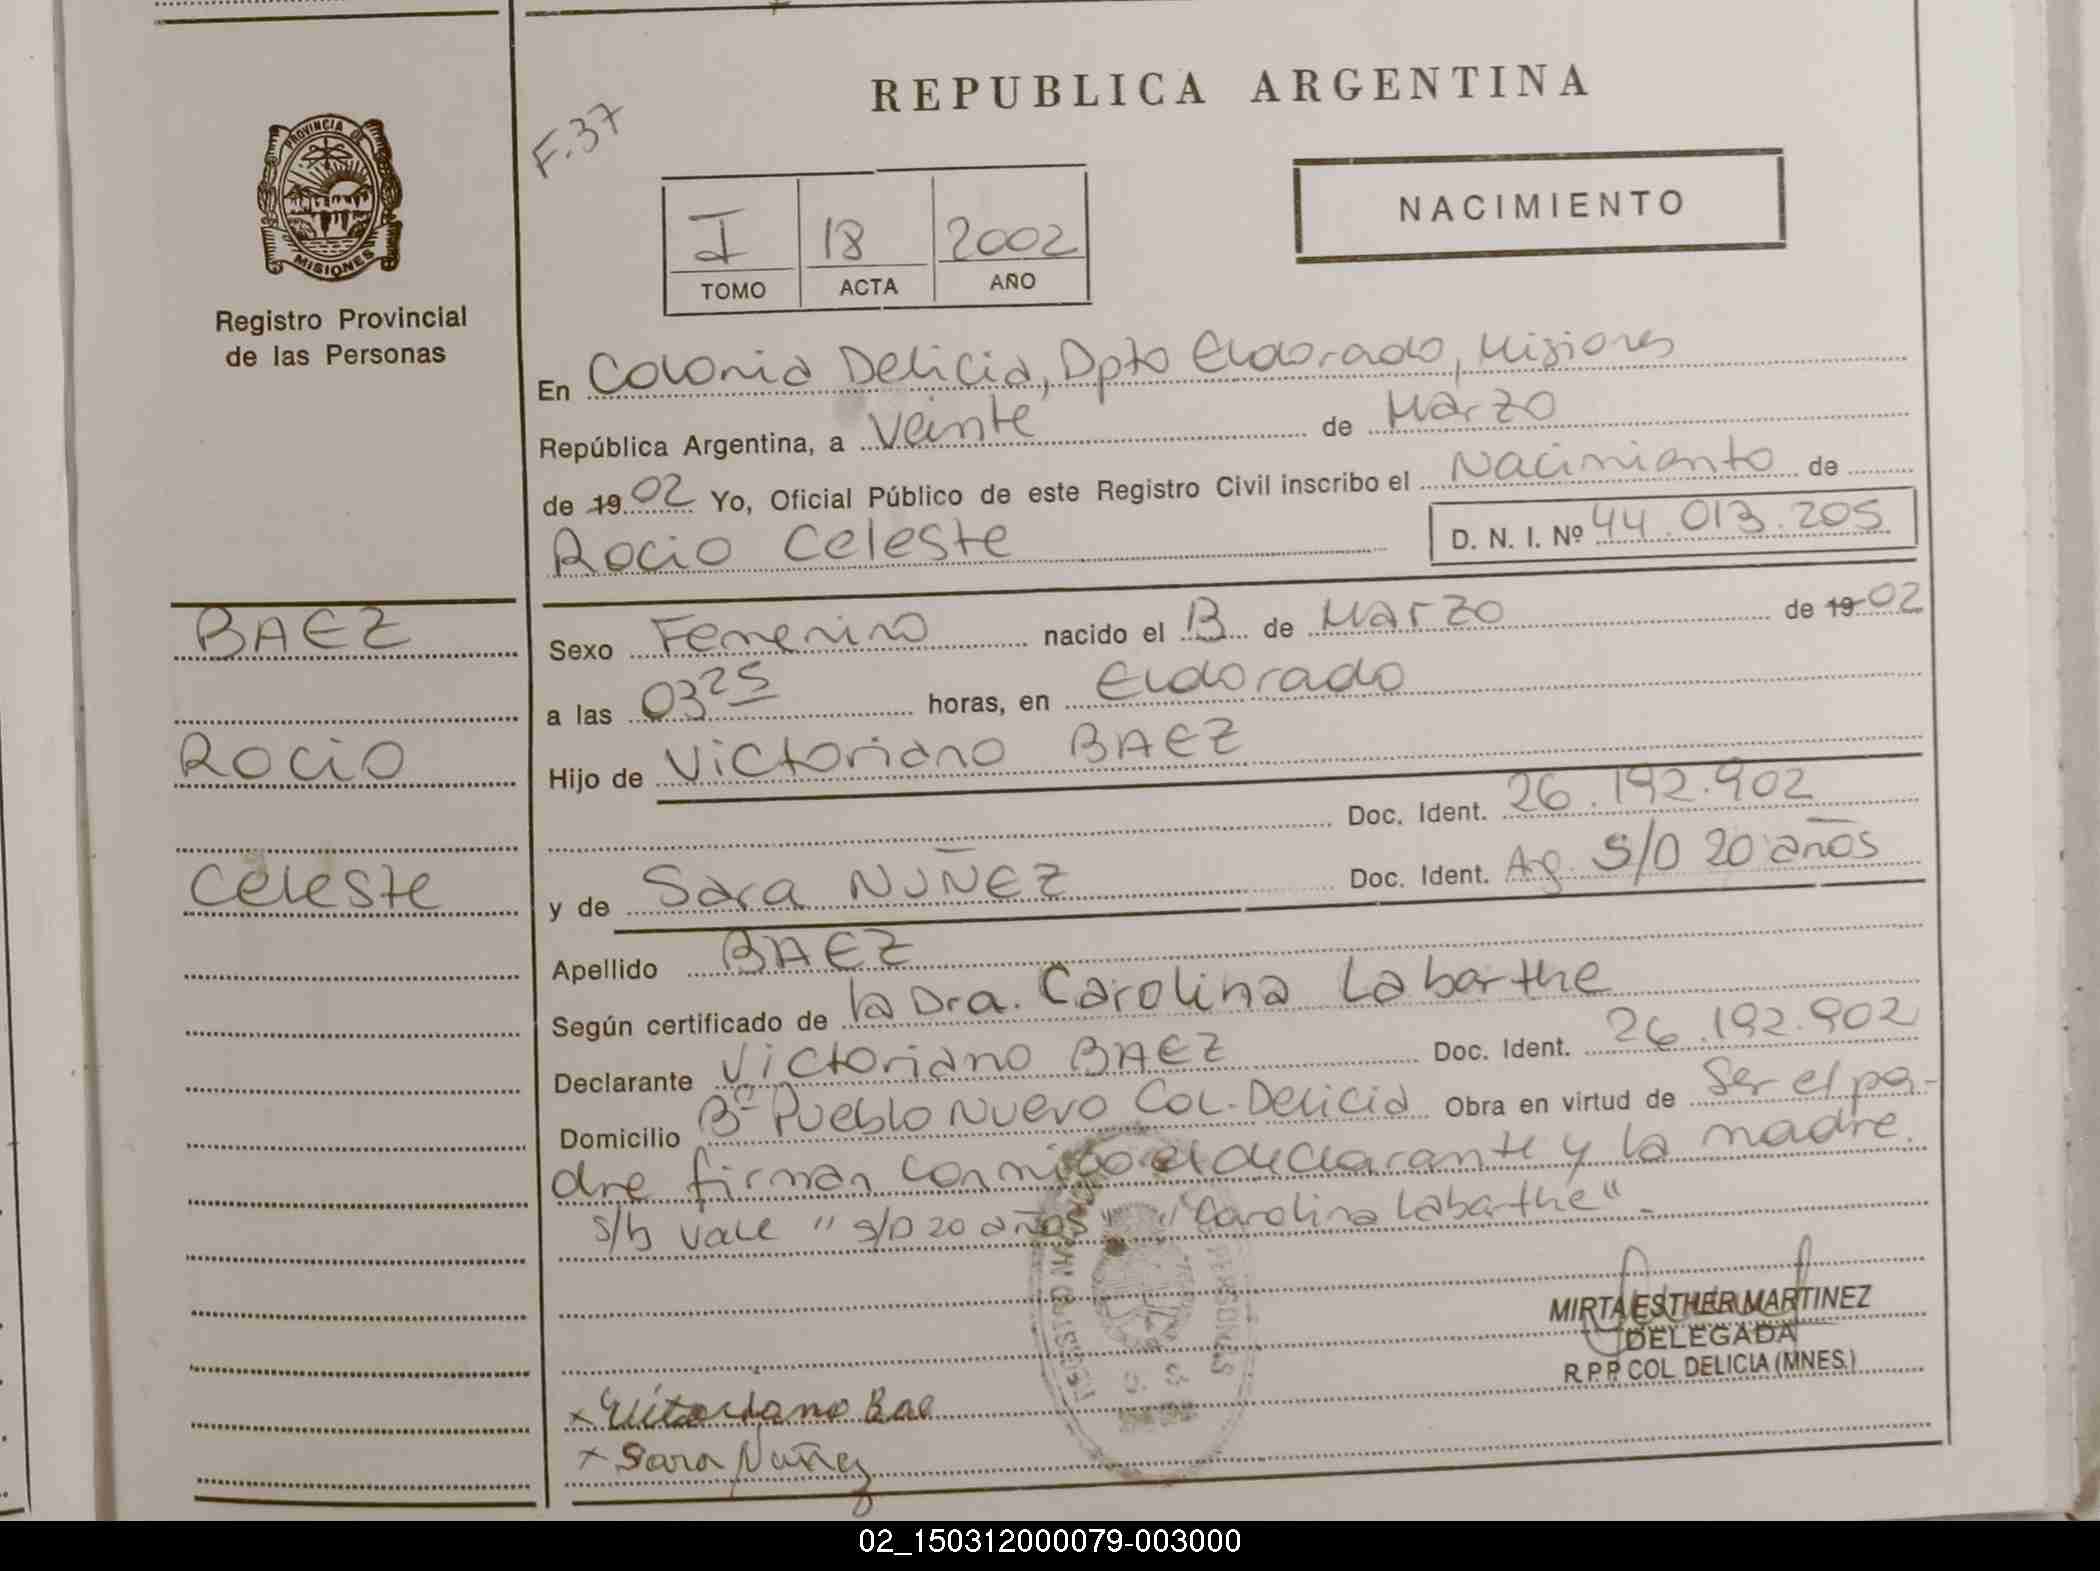 REPUBLICA ARGENTINA
F.37
PROVINCIA DE
MISIONES
NACIMIENTO
I 18 2002
TOMO ACTA AÑO
Registro Provincial
de las Personas
En Colonia Delicia, Dpto Eldorado, Misiones
República Argentina, a Veinte de Marzo
de 19 02 Yo, Oficial Público de este Registro Civil inscribo el Nacimiento de
Rocio Celeste D. N. I. Nº 44.013.205
BAEZ
Rocio
Celeste
Sexo Femenino nacido el 13 de Marzo de 19 02
a las 03 25 horas, en Eldorado
Hijo de Victoriano BAEZ
Doc. Ident. 26.192.902
y de Sara NUÑEZ Doc. Ident. Ag. S/D 20 años
Apellido BAEZ
Según certificado de la Dra. Carolina Labarthe
Declarante Victoriano BAEZ Doc. Ident. 26.192.902
Domicilio Bº Pueblo Nuevo Col. Delicia Obra en virtud de Ser el pa-
dre firman conmigo el declarante y la madre.
s/b vale "s/D 20 años" "Carolina Labarthe".-
PERSONAS
MIRTA ESTHER MARTINEZ
DELEGADA
R.P.P. COL. DELICIA (MNES.)
x Victoriano Bae
x Sara Nuñez
02_150312000079-003000